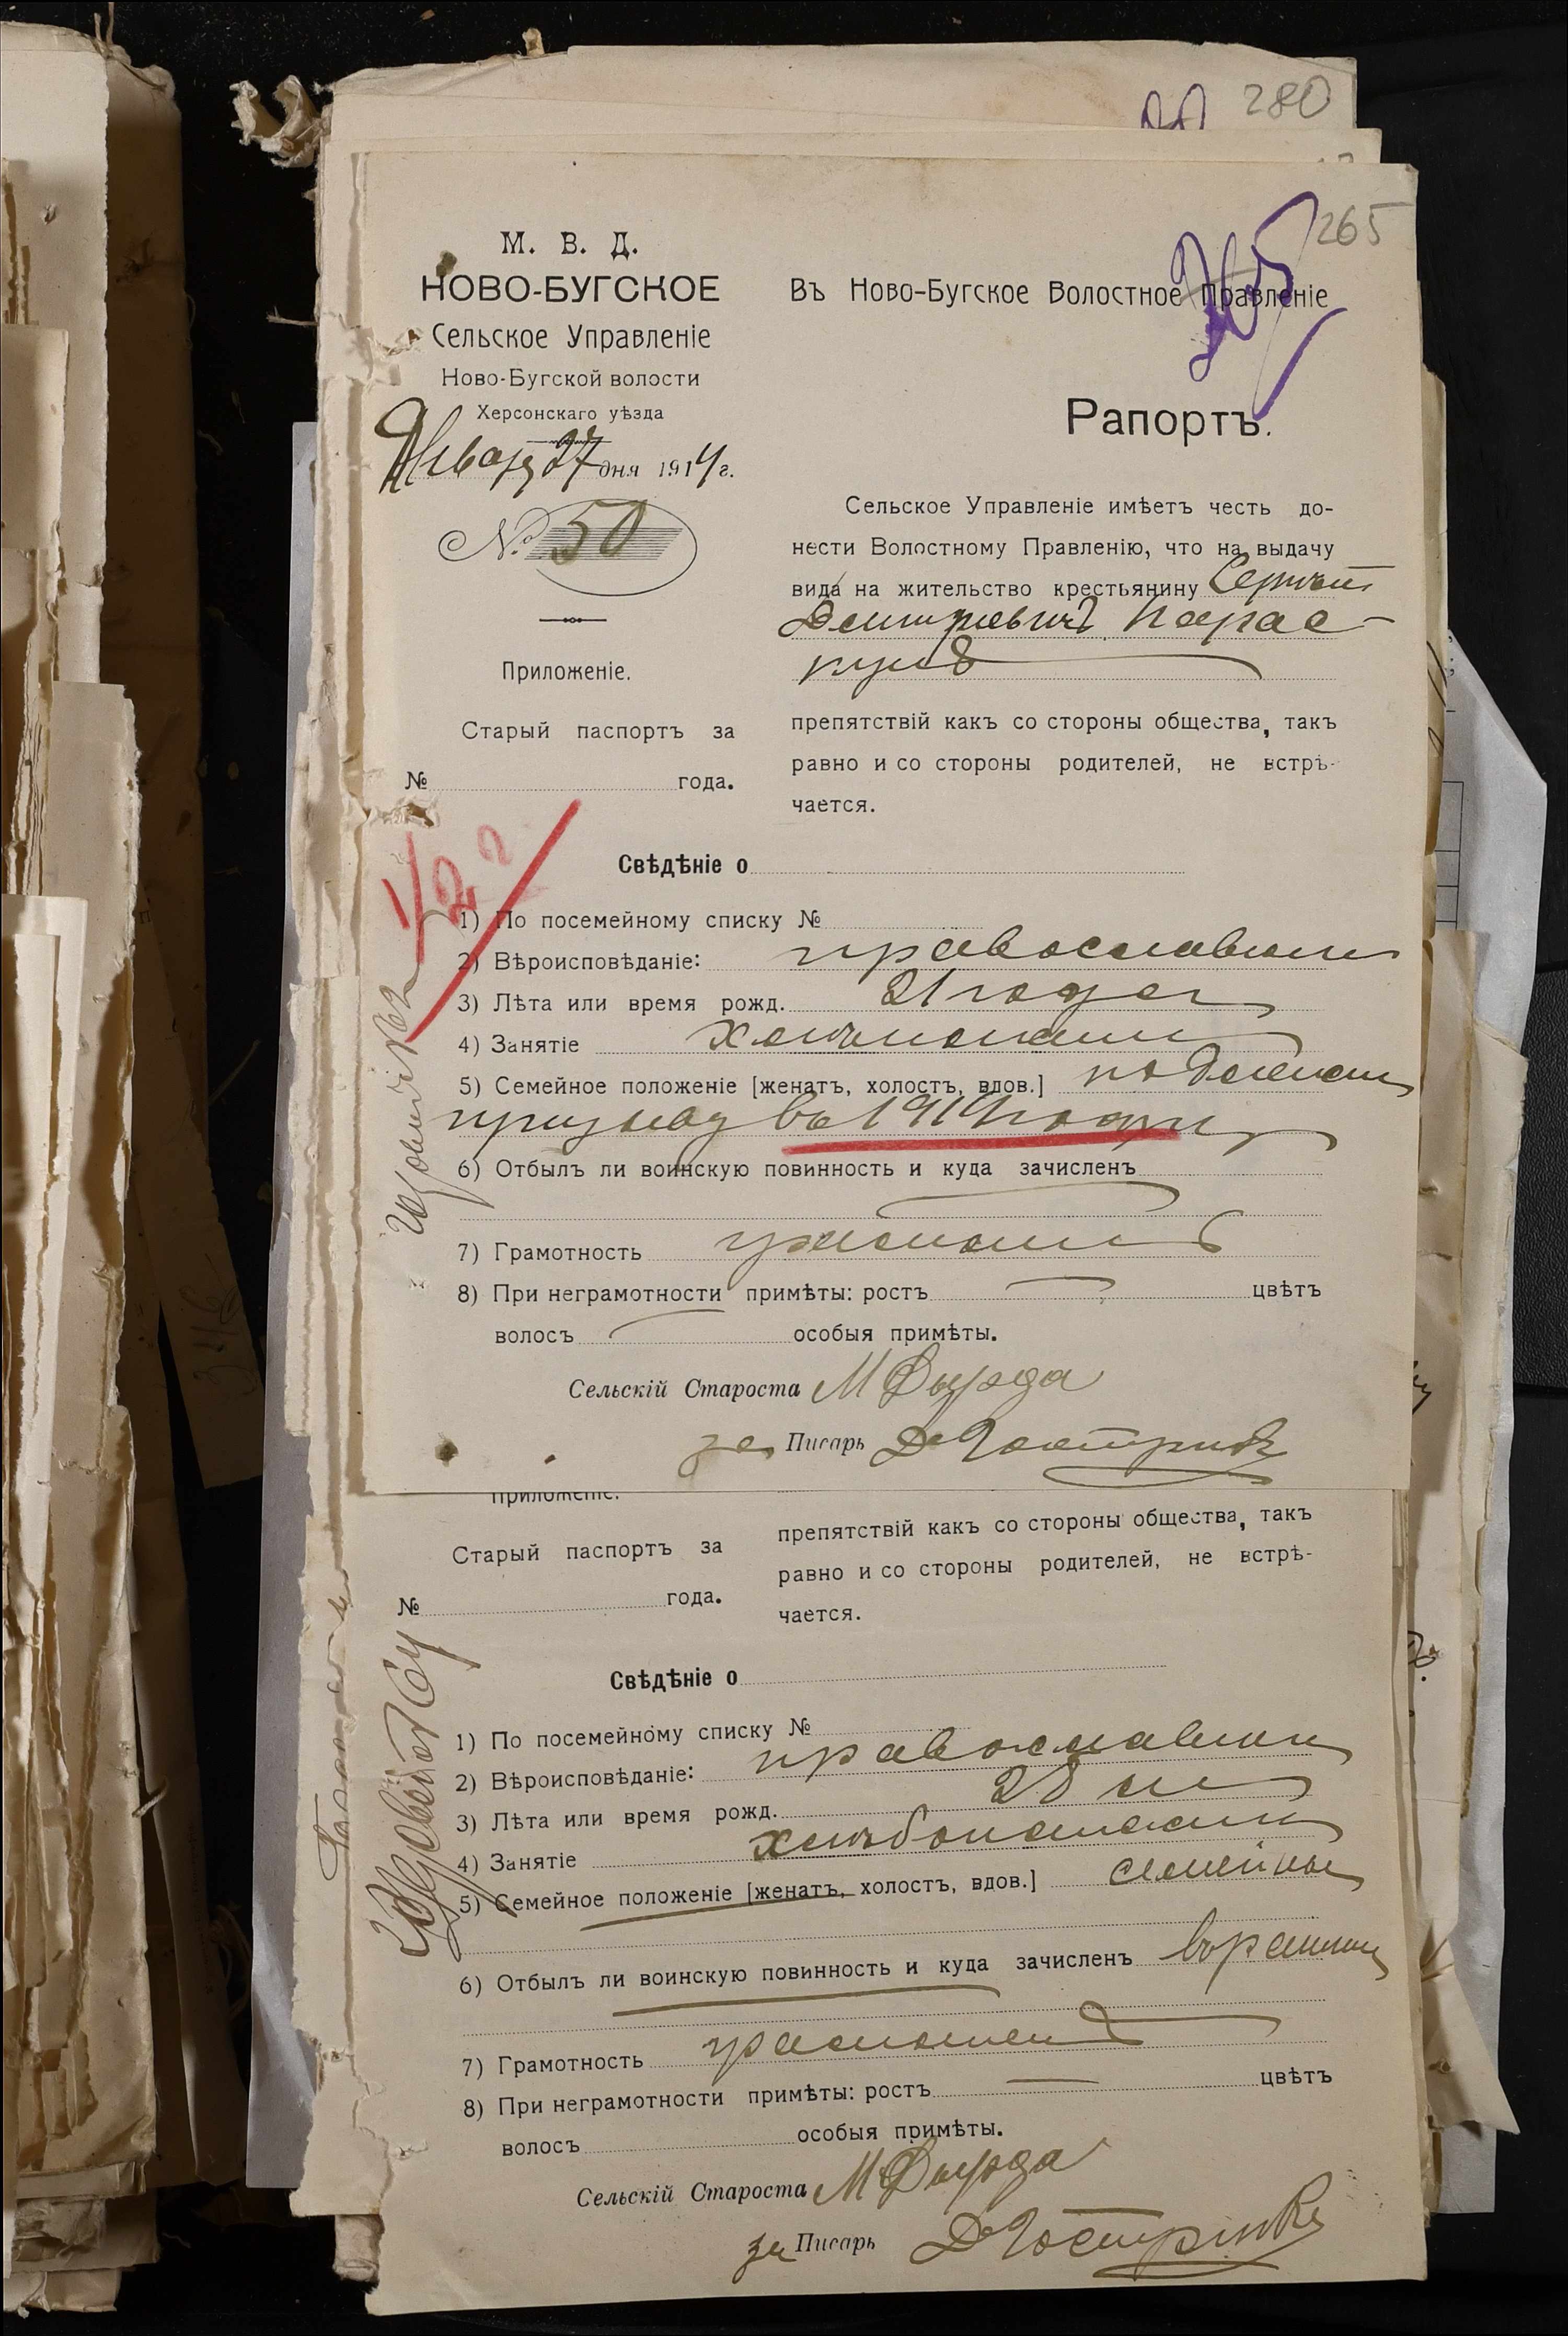 280
265
М. В. Д.
НОВО-БУГСКОЕ
Сельское Управленіе
Ново-Бугской волости
Херсонскаго уѣзда
Января 27 дня 1914 г.
№ 50
Приложеніе.
Старый паспортъ за
№ года.
Въ Ново-Бугское Волостное Правленіе
Рапортъ.
Сельское Управленіе имѣетъ честь до-
нести Волостному Правленію, что на выдачу
вида на жительство крестьянину Сергѣй
Дмитріевичъ
препятствій какъ со стороны общества, такъ
равно и со стороны родителей, не встрѣ-
чается.
Свѣдѣніе о
1) По посемейному списку №
2) Вѣроисповѣданіе: православный
3) Лѣта или время рожд. 21 года
4) Занятіе
5) Семейное положеніе [женатъ, холостъ, вдов.] подлежит
призыву въ 1914 году
6) Отбылъ ли воинскую повинность и куда зачисленъ
7) Грамотность грамотный
8) При неграмотности примѣты: ростъ цвѣтъ
волосъ особыя примѣты.
Сельскій Староста М
за Писарь Д
Приложеніе.
Старый паспортъ за
№ года.
препятствій какъ со стороны общества, такъ
равно и со стороны родителей, не встрѣ-
чается.
Свѣдѣніе о
1) По посемейному списку №
2) Вѣроисповѣданіе: православный
3) Лѣта или время рожд. 28 л
4) Занятіе хлѣбопашец
5) Семейное положеніе [женатъ, холостъ, вдов.] семейный
6) Отбылъ ли воинскую повинность и куда зачисленъ
7) Грамотность грамотенъ
8) При неграмотности примѣты: ростъ цвѣтъ
волосъ особыя примѣты.
Сельскій Староста М
за Писарь Д